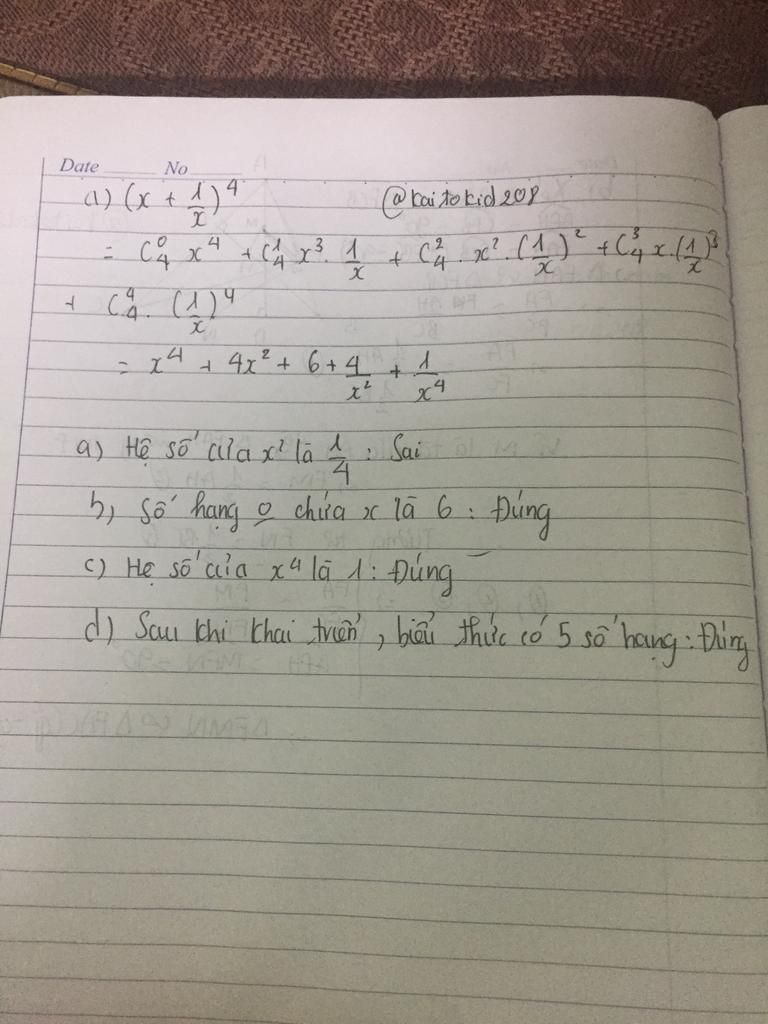 Date No
a) (x + 1/x)^4 @kaitokid208
= C_4^0 x^4 + C_4^1 x^3 . 1/x + C_4^2 . x^2 . (1/x)^2 + C_4^3 x . (1/x)^3
+ C_4^4 . (1/x)^4
= x^4 + 4x^2 + 6 + 4/x^2 + 1/x^4
a) Hệ số của x^2 là 1/4 : Sai
b) Số hạng o chứa x là 6 : Đúng
c) Hệ số của x^4 là 1 : Đúng
d) Sau khi khai triển , biểu thức có 5 số hạng : Đúng